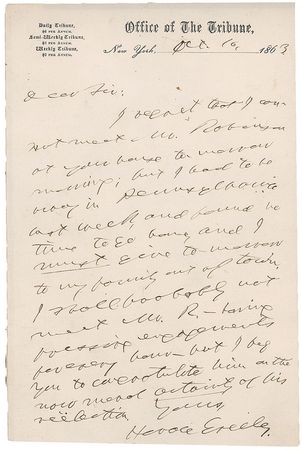 Daily Tribune,
$8 per Annum.
Semi-Weekly Tribune,
$3 per Annum.
Weekly Tribune,
$2 per Annum.
Office of The Tribune,
New York, Oct. 10, 1863
Dear Sir:
I regret that I can
not meet Mr. Robinson
at your house to-morrow
morning; but I had to be
away in Pennsylvania
last week, and found no
time to go home, and I
must give to-morrow
to my family out of town.
I shall probably not
meet Mr. R— having
pressing engagements
for every hour—but I beg
you to congratulate him on the
now moral certainty of his
reëlection.
Yours,
Horace Greeley.